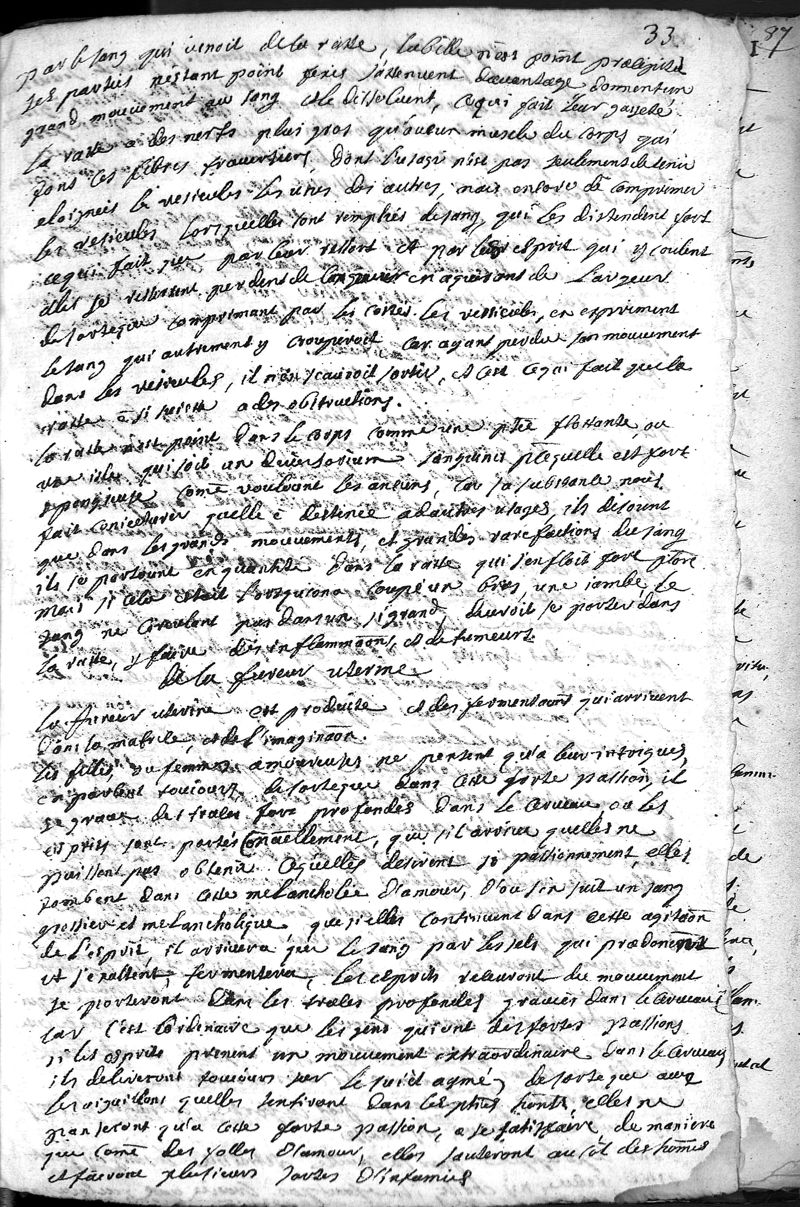 33
87
par le sang qui venoit de la ratte, la bille n'est point præcipité
ses parties n'estant point fixés s'attenuent davantage donnent un
grand mouvement au sang et le dissolvent, ce qui fait leur gayeté.
la ratte a des nerfs plus gros qu'aucun muscle du corps qui
font ces fibres traversiers, dont l'usage n'est pas seulement de tenir
eloignées les vesicules les unes des autres, mais encore de comprimer
les vesicules lorsquelles sont remplies de sang, qui les distendent fort
ce qui fait que par leur ressort et par les esprit qui y coulent
elles se resserrent perdent de longueur en aquerant de largeur
de sorte que comprimant par les costes les vessicules, en expriment
le sang qui autrement y croupiroit car ayant perdu son mouvement
dans les vesicules, il n'en scauroit sortir, et c'est ce qui fait que la
ratte è si suiette a des obstructions.
la ratte n'est point dans le corps comme une ptie flottante, ou
une isle qui soit un diversorium sanguinis pceque elle est fort
spongieuse come vouloient les anciens, car sa substance nous
fait coniecturer quelle è destinée a d'autres usages, ils disoient
que dans les grands mouvements, et grandes rarefactions du sang
ils se portoient en quantité dans la ratte qui s'enfloit fort
mais si cela estoit lorsqu'on a coupé un bras, une iambe, le
sang ne circulant pas dans un si grand, devroit se porter dans
la ratte, y faire des inflammãons, et des tumeurs.
De la fureur uterine
la fureur uterine est produite et des fermentaõns qui arrivent
dans la matrice, et de l'imaginaõn.
les filles, ou femmes amoureuses ne pensent qu'a leur intrigues,
en parlent toujours, de sorte que dans cette forte passion, il
se grave des traces fort profondes dans le cerveau ou les
esprits sont portés coñuellement, que s'il arrive quelles ne
puissent pas obtenir ce quelles desirent si passionnement, elles
tombent dans cette melancholie d'amour, d'ou s'en suit un sang
grossier et melancholique que si elles continuent dans cette agitaõn
de l'esprit, il arrivera que le sang par les sels qui prædominent
et s'exaltent, fermentera, les esprits recevront du mouvement
se porteront dans les traces profondes gravées dans le cerveau
car c'est l'ordinaire que les gens qui ont des fortes passions
si les esprits prenent un mouvement extraordinaire dans le cerveau
ils delireront toujours sur le suiet aymé, de sorte que avec
les aiguillons quelles sentiront dans les pties honts, elles ne
panseront qu'a cette forte passion, a se satisfaire de maniere
que come des folles d'amour, elles sauteront au col des homes
et fairont plusieurs sortes d'infamies